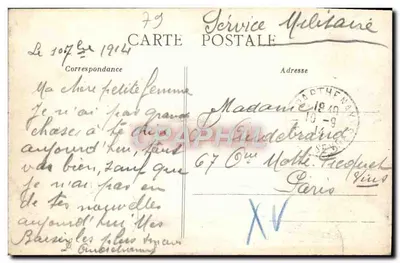 79
Service Militaire
CARTE POSTALE
Correspondance
Adresse
Le 10 7bre 1914
Ma chère petite femme
Je n'ai pas grand
chose à te dire
aujourd'hui, tout
va bien, sauf que
je n'ai pas eu
de tes nouvelles
aujourd'hui. Mes
Baisers les plus
Madame
67 Que Motte-Picquet
Paris
XV
PARTHENAY